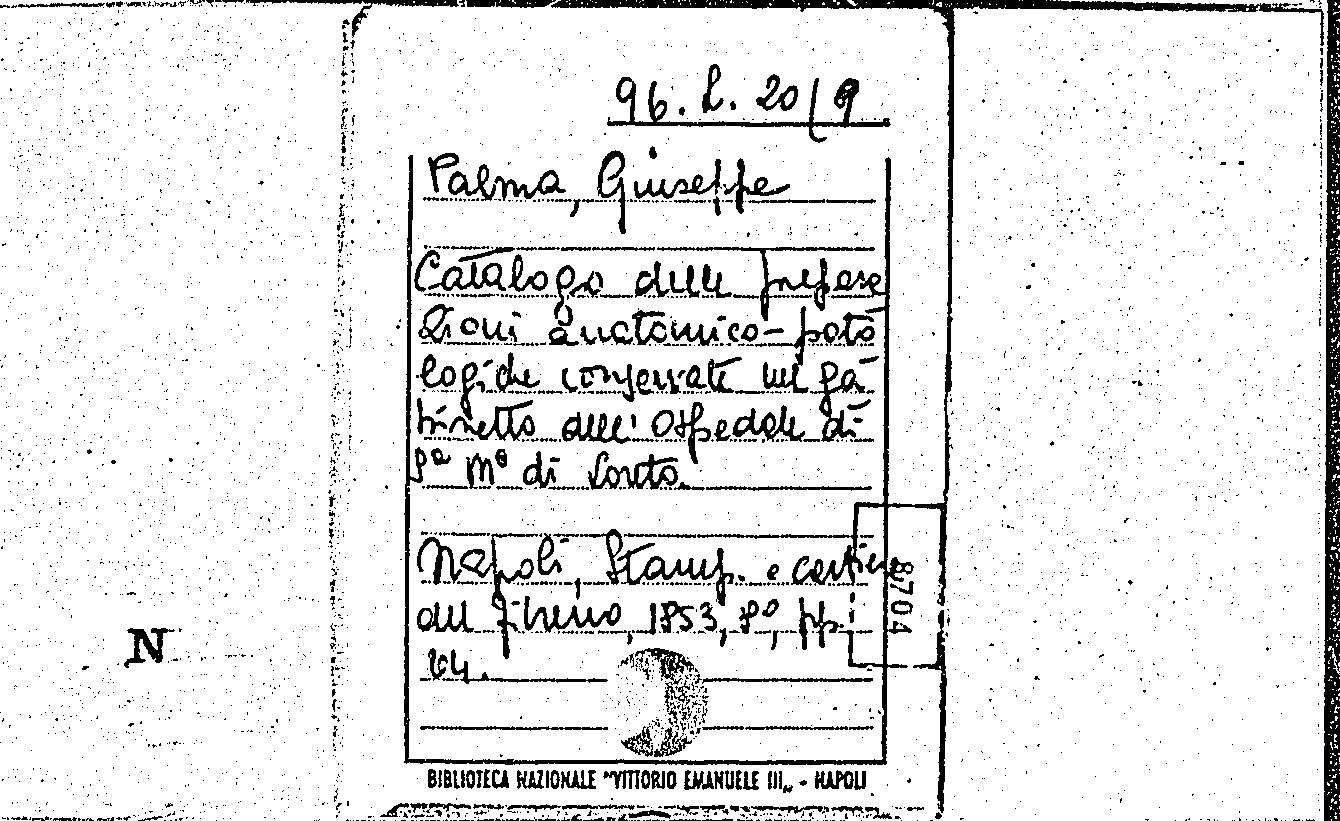 96. L. 20/9
Palma, Giuseppe
Catalogo delle prepara
zioni anatomico-pato
logiche conservate nel ga
binetto dell' Ospedale di
Sª Mª di Loreto.
Napoli, Stamp. e cartiera
del Fibreno, 1853, 8º, pp.
24.
8704
N
BIBLIOTECA NAZIONALE "VITTORIO EMANUELE III„ - NAPOLI